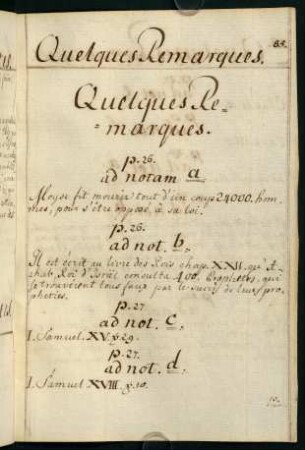 Quelques Remarques. 85.
Quelques Re=
=marques.
p. 26.
ad notam a
Moyse fit mourir tout d'un coup 24000. hom-
mes, pour s'être opposé à sa loi.
p. 26.
ad not. b.
Il est écrit au livre des Rois chap. XXII. qu'A-
chab, Roi d'Israël consulta 400. Prophetes, qui
se trouvèrent tous faux par le succès de leurs pro-
pheties.
p. 27.
ad not. c.
I. Samuel. XV. v. 29.
p. 27.
ad not. d.
I. Samuel XVIII. v. 10.